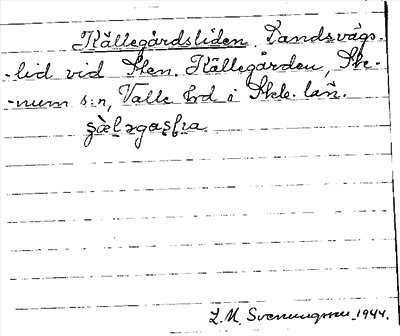 Källegårdsliden. Landsvägs-
-lid vid Sten. Källegården, Ste-
-num s:n, Valle hrd i Skb. län.
L. M. Svenungsson 1944.